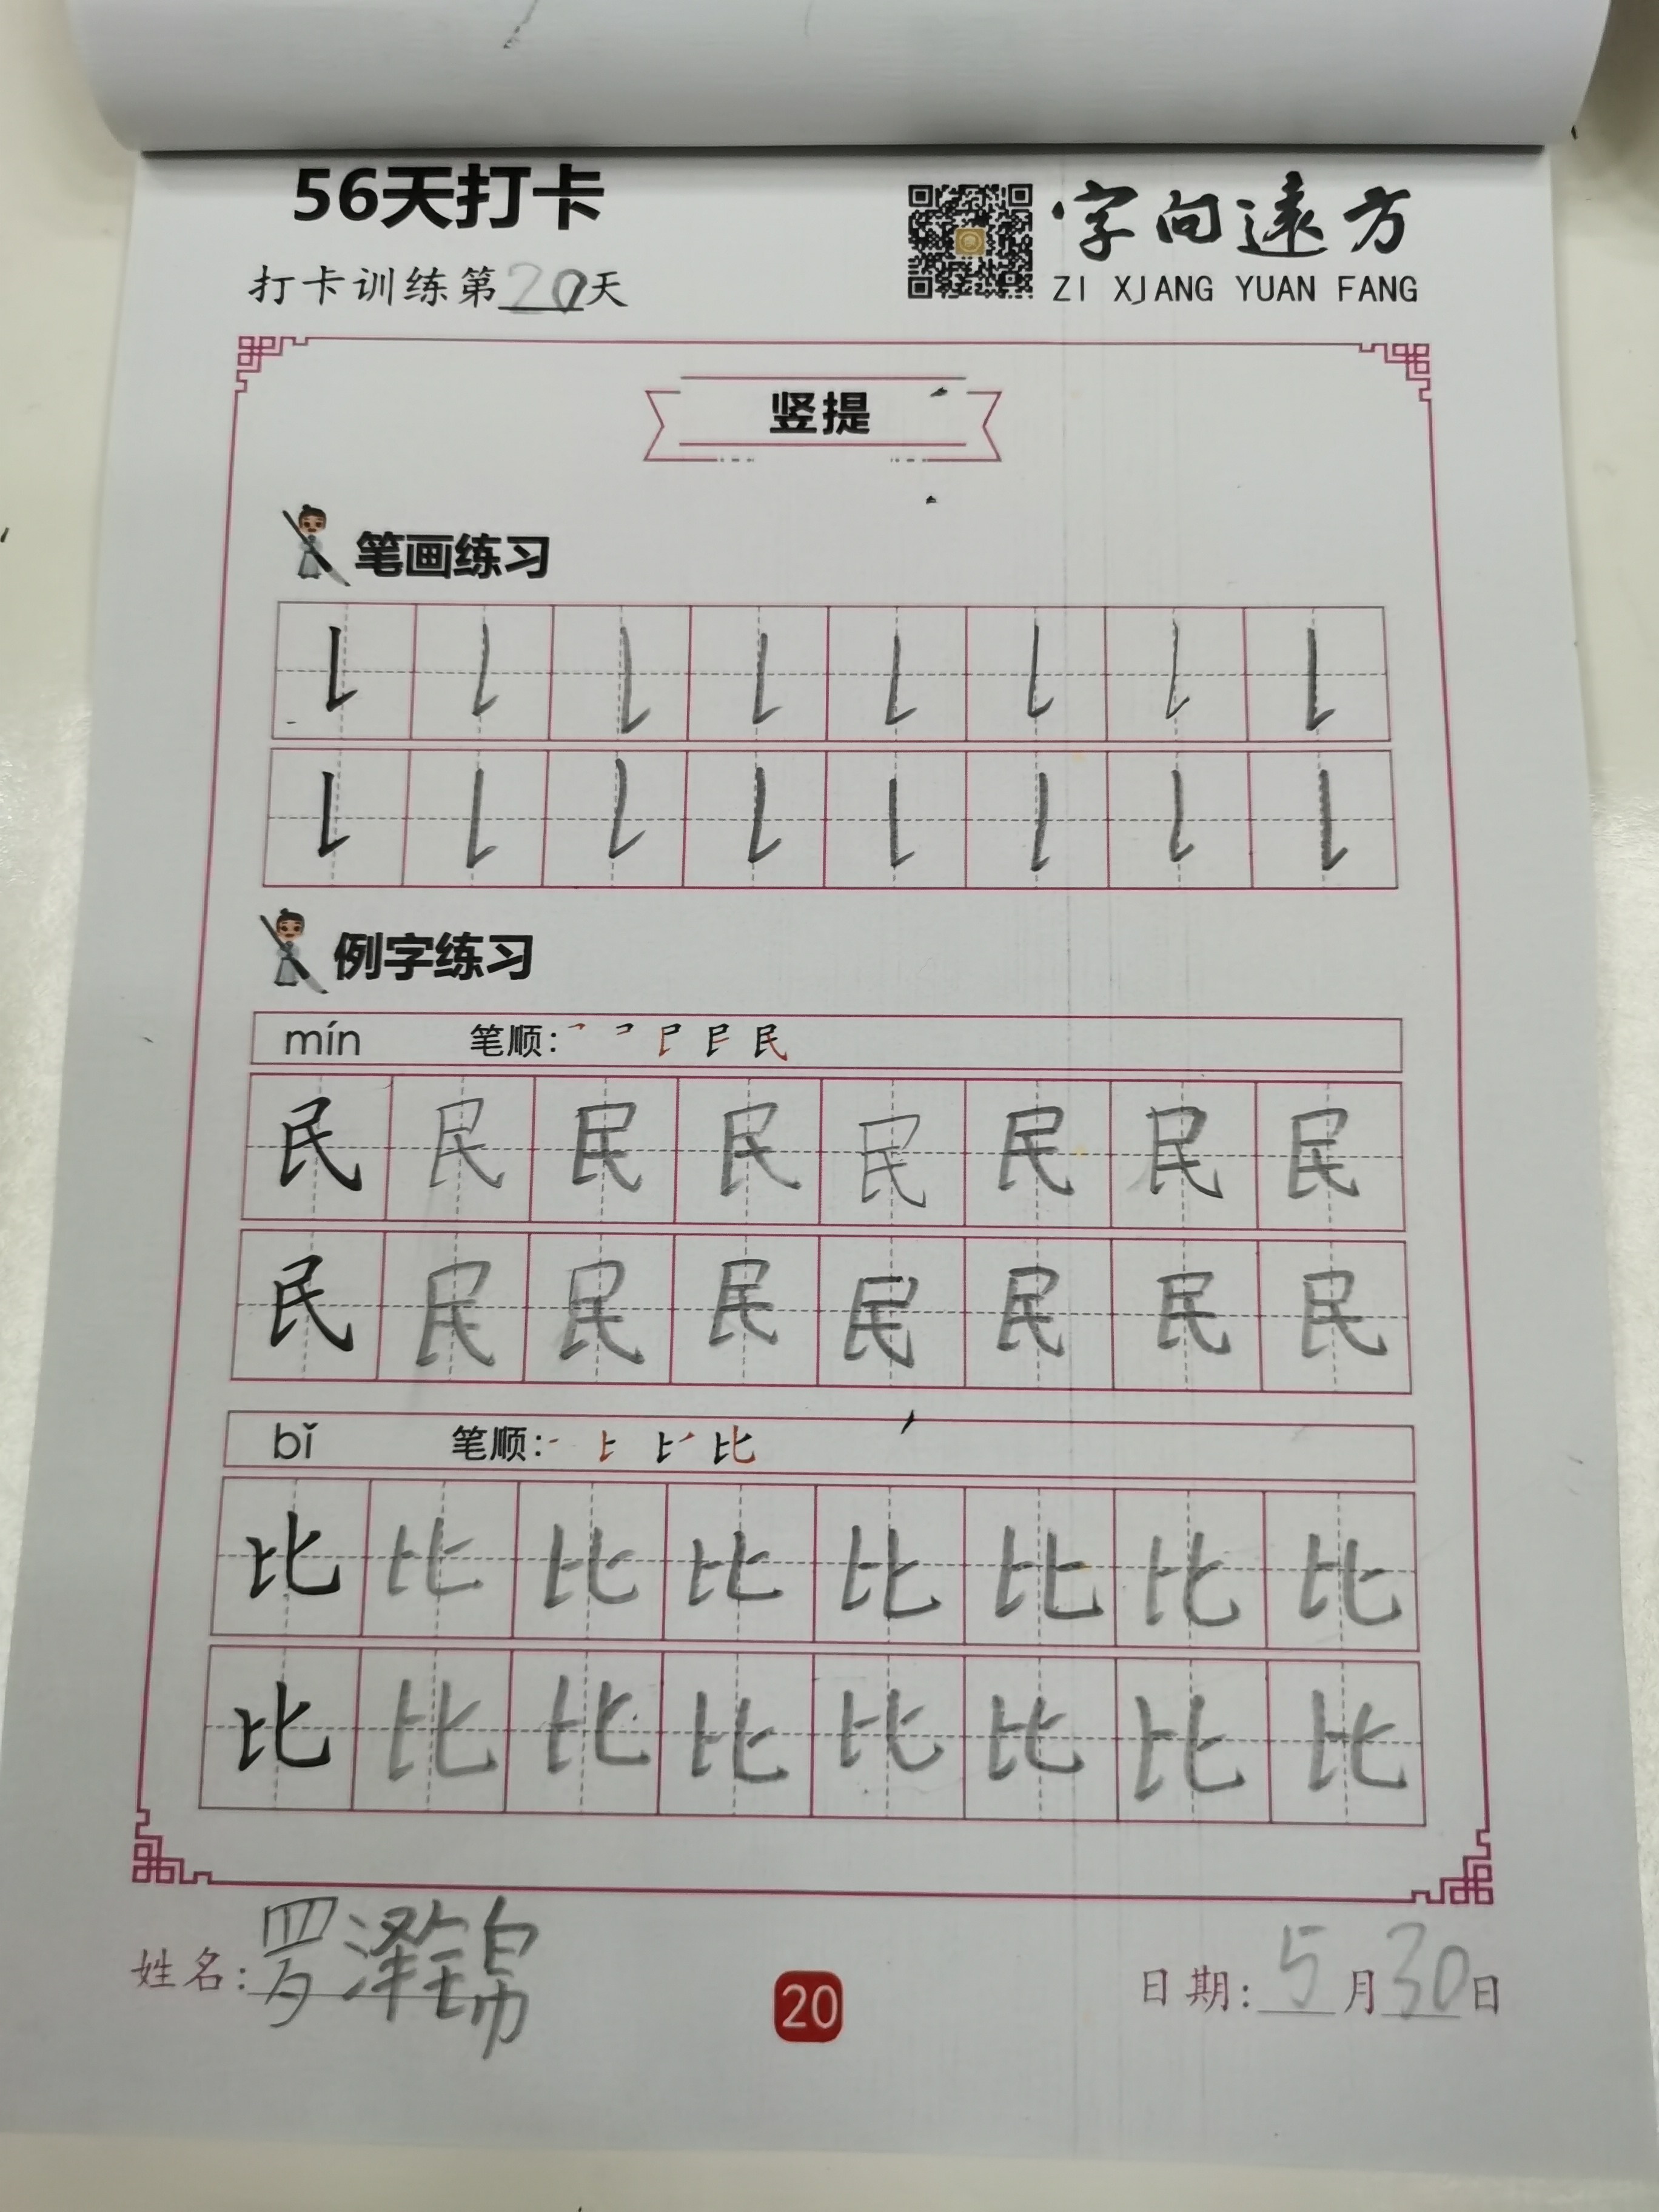 56天打卡
字向遠方
打卡训练第20天
ZI XJANG YUAN FANG
竖提
笔画练习
例字练习
mín 笔顺:
民 民 民 民 民 民 民 民
民 民 民 民 民 民 民 民
bǐ 笔顺:
比 比 比 比 比 比 比 比
比 比 比 比 比 比 比 比
姓名:罗泽锦
20
日期:5月30日